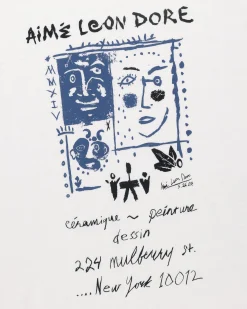 AiMÉ LEON DORE
MMXIV
Aimé Leon Dore
céramique ~ peinture
dessin
224 mulberry st.
....New York 10012